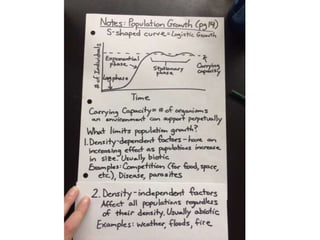 Notes: Population Growth (pg 14)
S-shaped curve = Logistic Growth
# of Individuals
Exponential
phase
Lag phase
Stationary
phase
Carrying
Capacity
Time
Carrying Capacity = # of organisms
an environment can support perpetually
What limits population growth?
1. Density-dependent factors - have an
increasing effect as populations increase
in size. Usually biotic
Examples: Competition (for food, space,
etc.), Disease, parasites
2. Density-independent factors
Affect all populations regardless
of their density. Usually abiotic
Examples: weather, floods, fire